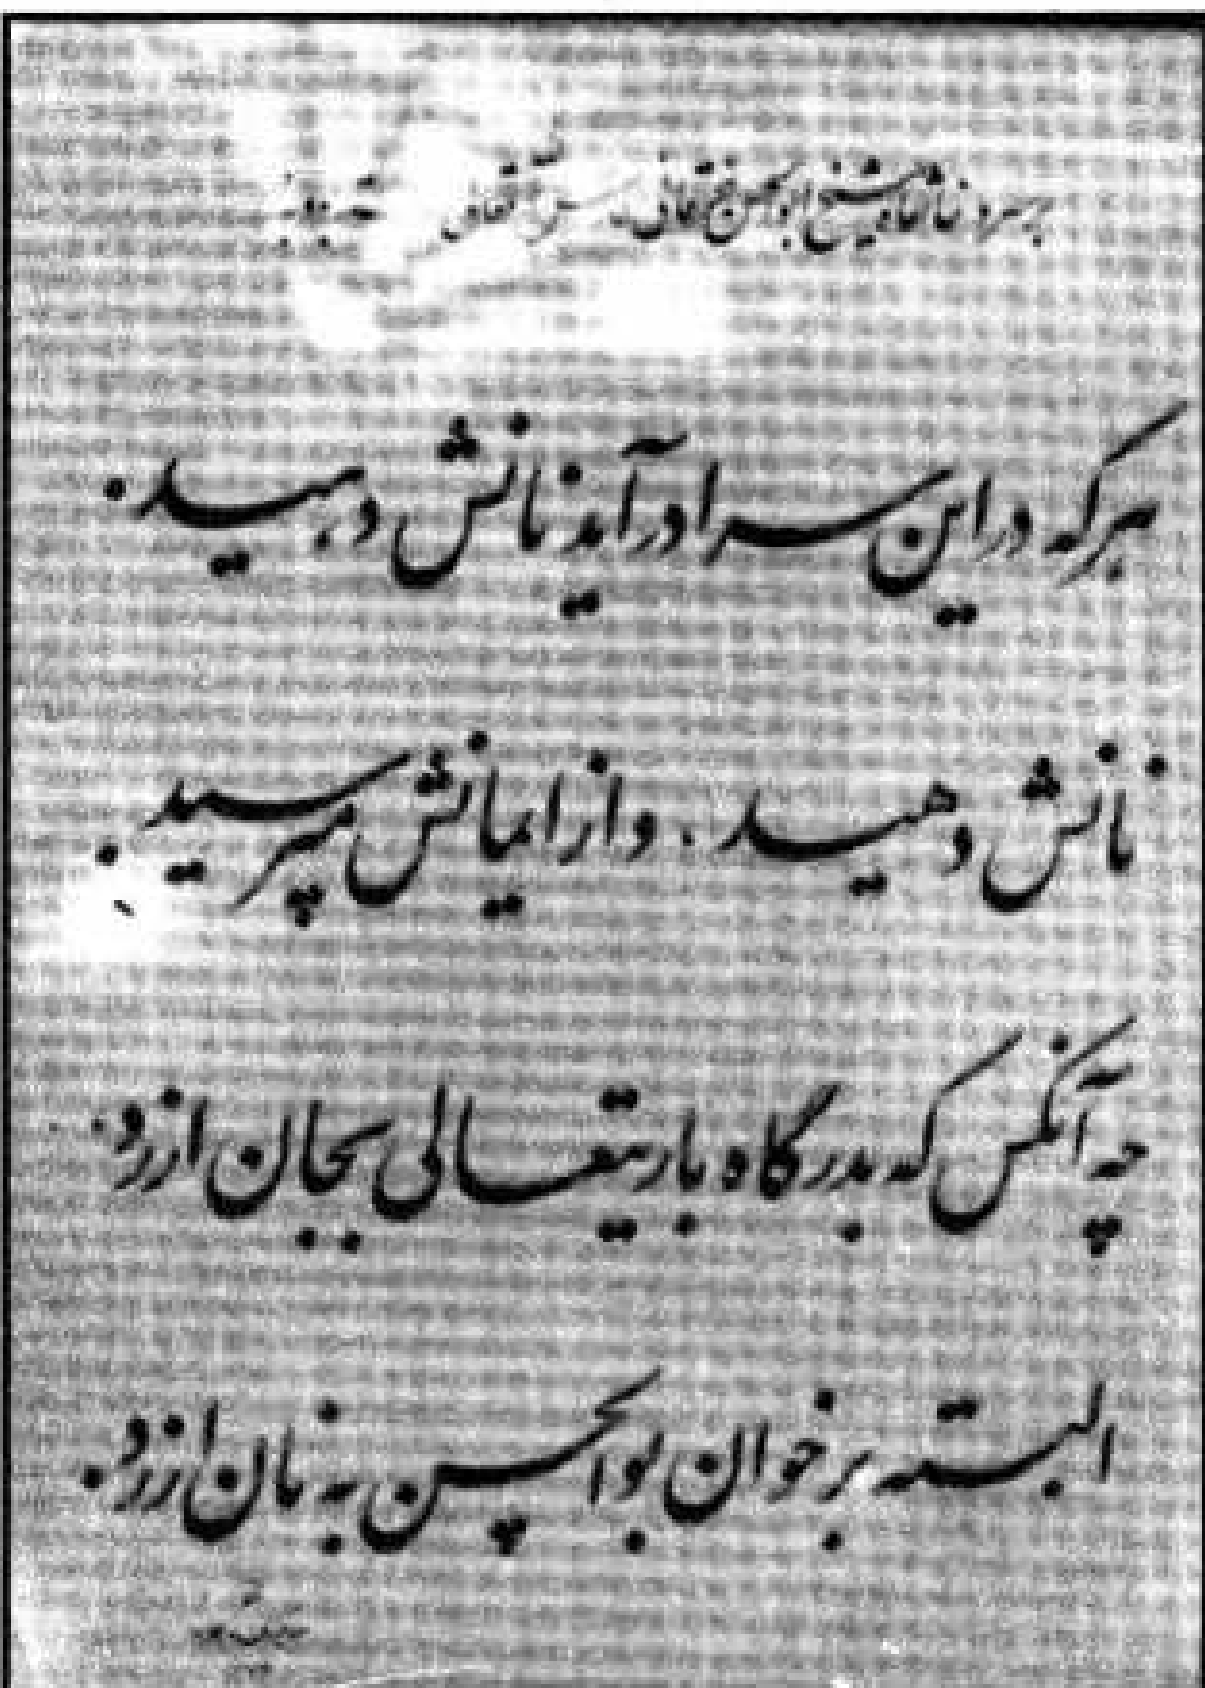 بر سر در خانقاه شیخ ابوالحسن خرقانی
هر که در این سرا در آید نانش دهید.
نانش دهید. و از ایمانش مپرسید.
چه آنکس که بدرگاه باریتعالی بجان ارزد.
البته بر خوان بوالحسن به نان ارزد.